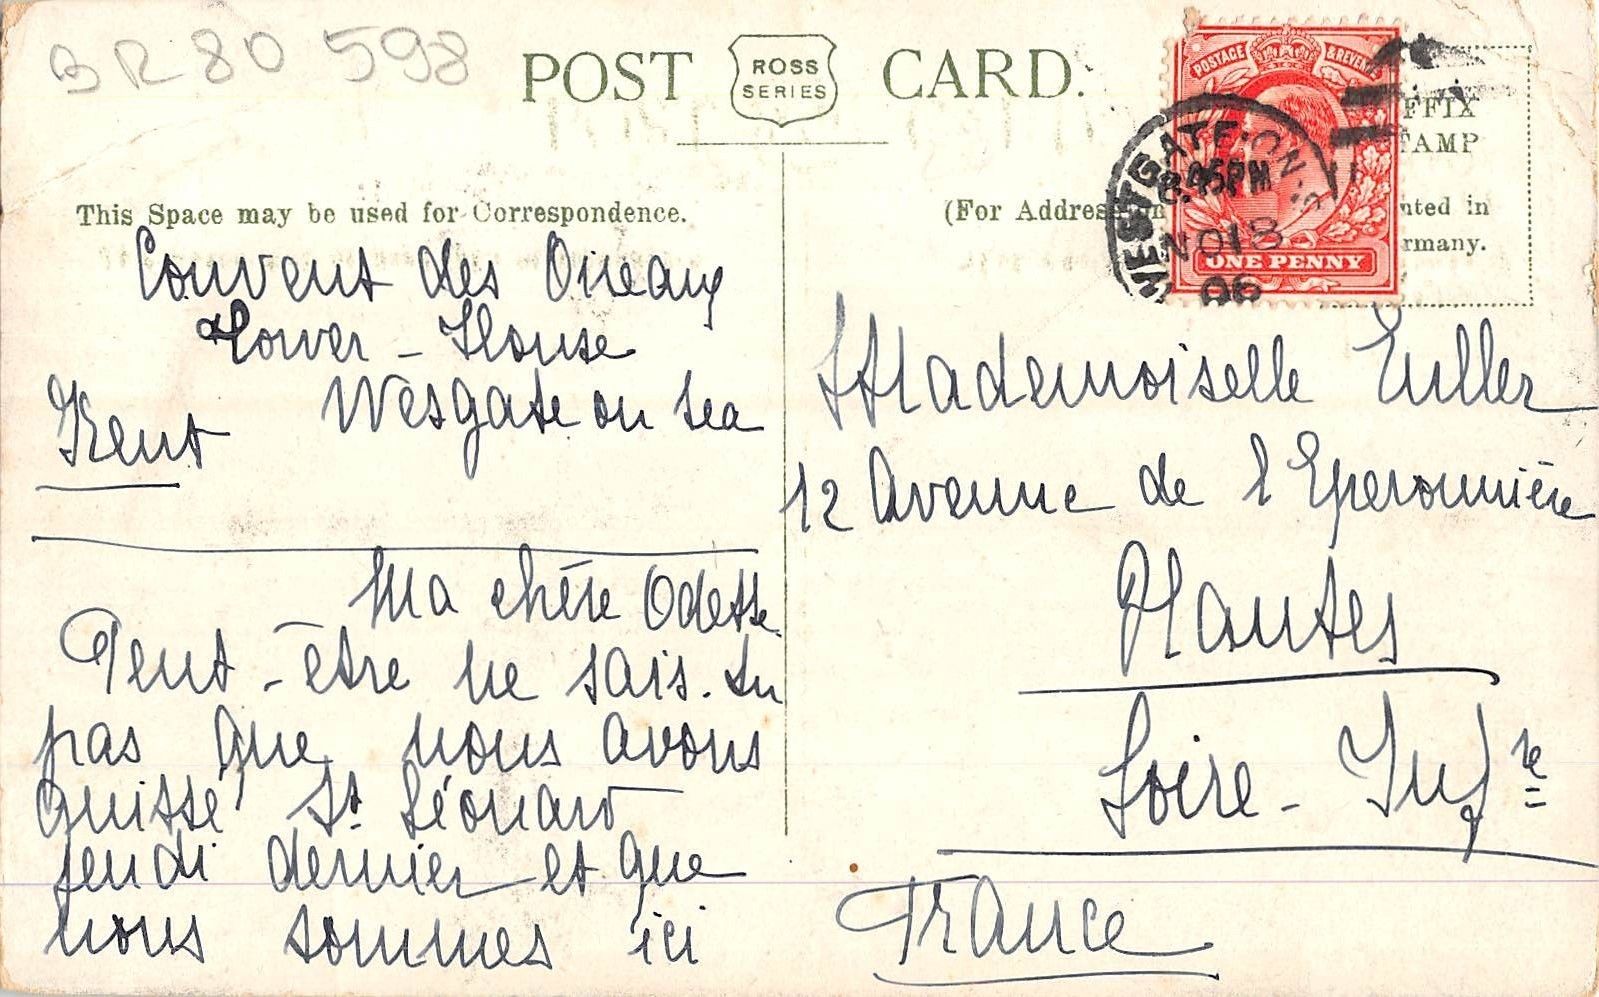 BR 80 598
POST CARD.
ROSS
SERIES
POSTAGE & REVENUE
ONE PENNY
WESTGATE-ON-S
8.45PM
NO 18
06
FFIX
TAMP
This Space may be used for Correspondence.
(For Address on
nted in
rmany.
Convent des Oiseaux
Tower - House
Wesgate on sea
Kent
Ma chère Odette
Peut-être ne sais-tu
pas que nous avons
quitté St Léonard
jeudi dernier et que
nous sommes ici
Mademoiselle Euller
12 Avenue de l'Eperonnière
Nantes
Loire-Infre
France